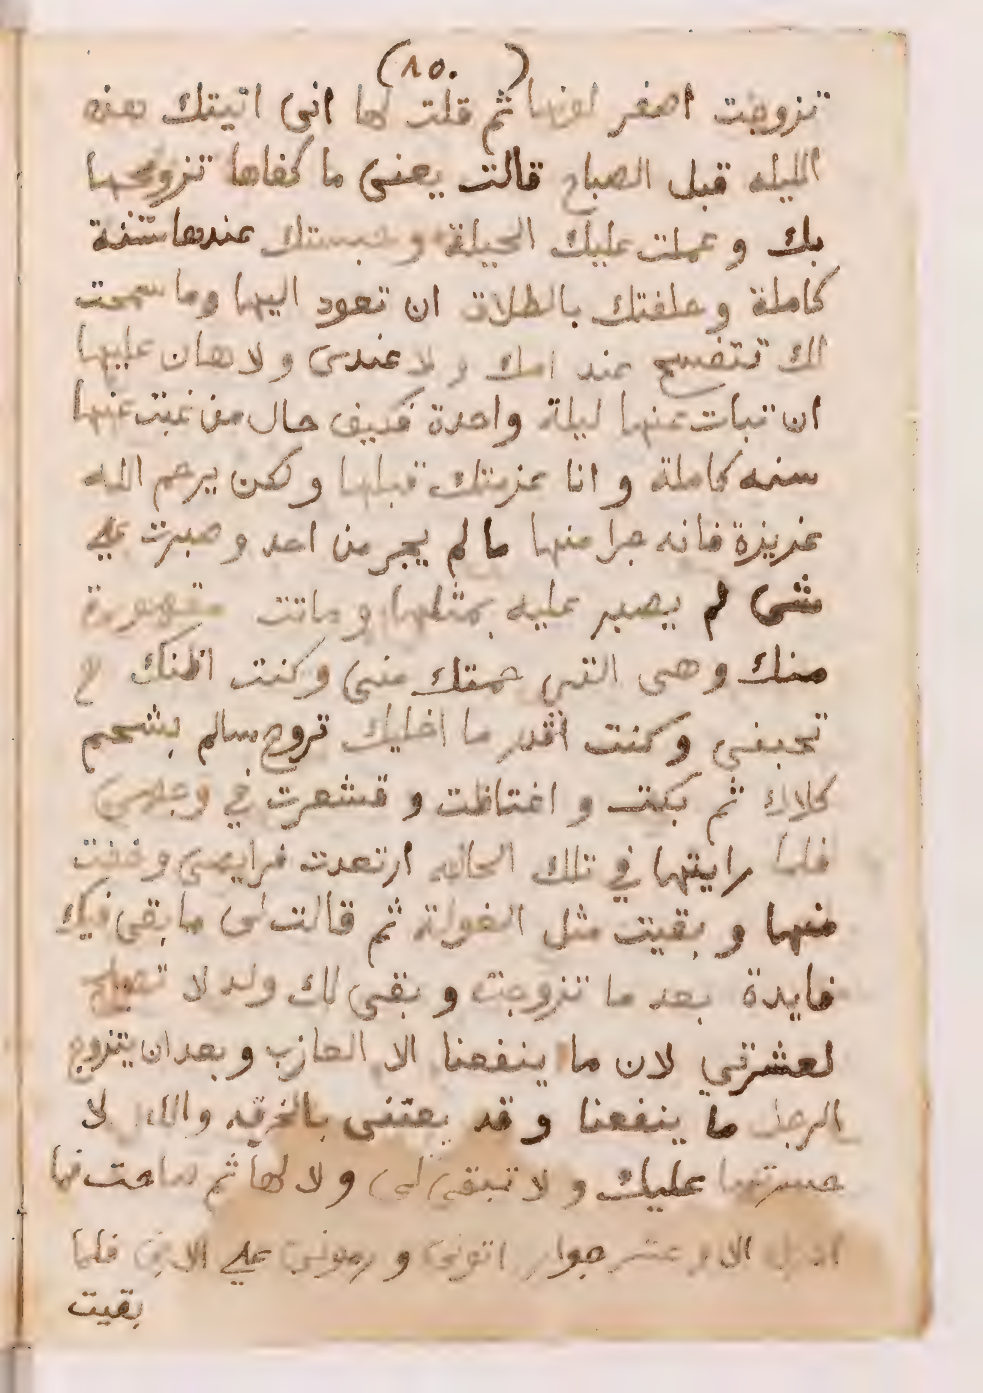 (٨٥٠)
تزوجت اصفر لونها ثم قلت لها انى اتيتك هذه
الليله قبل الصباح قالت يعنى ما كفاها تزوجها
بك و عملت عليك الحيلة وحبستك عندها سنة
كاملة و حلفتك بالطلاق ان تعود اليها وما سمحت
لك تتفسح عند امك و لا عندى و لا هان عليها
ان تبات عنها ليلة واحدة فكيف حال من غبت عنها
سنه كاملة و انا عرفتك قبلها و لكن يرحم الله
عزيزة فانه جرا منها ما لم يجر من احد و صبرت على
شى لم يصبر عليه بمثلها و ماتت مقهورة
منك و هى التى حمتك منى و كنت اظنك
تحبنى و كنت اقدر ما اخليك تروح سالم بشحم
كلاك ثم بكت و اغتاظت و قشعرت في وجهى
فلما رايتها في تلك الحاله ارتعدت فرايصى و خفت
منها و بقيت مثل الغولة ثم قالت لى ما بقى فيك
فايدة بعد ما تزوجت و بقى لك ولد لا تصلح
لعشرتي لان ما ينفعنا الا العازب و بعد ان يتزوج
الرجل ما ينفعنا و قد بعتنى بالخرقه والله لا
حسرتها عليك و لا تبقى لى و لا لها ثم صاحت فما
الا و عشر جوار اتونى و رمونى على الارض فلما
بقيت